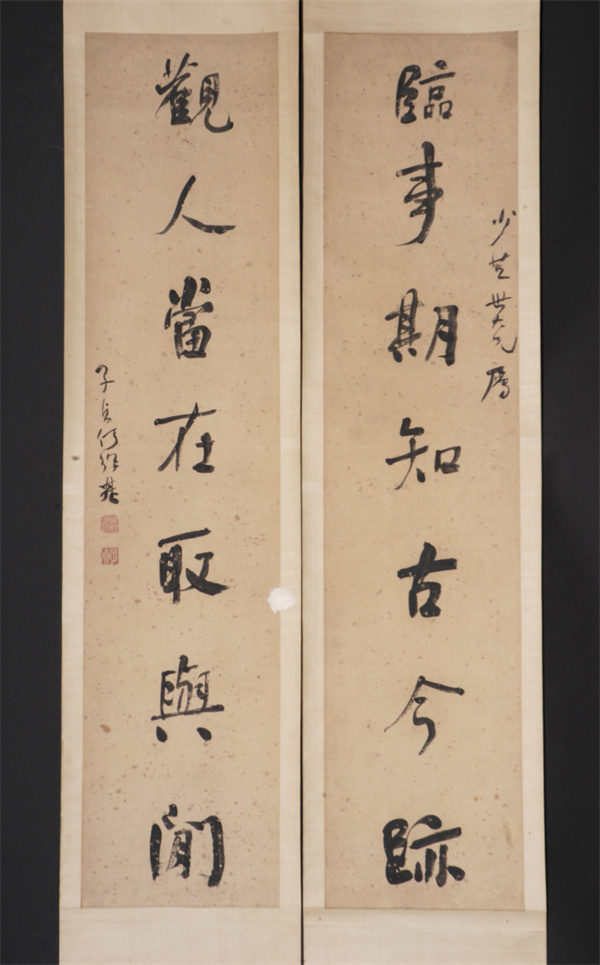 臨事期知古今跡
少芝世大兄屬
觀人當在取與閒
子貞何紹基